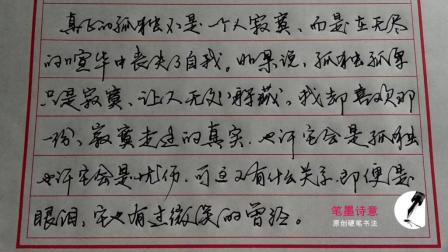 真正的孤独不是一个人寂寞，而是在无尽
的喧华中丧失了自我。如果说，孤独孤单
只是寂寞、让人无处躲藏。我却喜欢那
一份、寂寞走过的真实，也许它会是孤独
也许它会是忧伤，可这又有什么关系，即便是
眼泪，它也有过微深的曾经。
笔墨诗意
原创硬笔书法